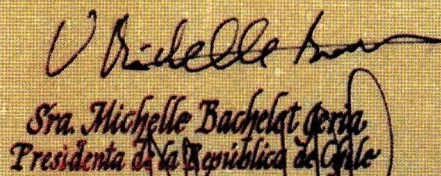 Sra. Michelle Bachelet Jeria
Presidenta de la República de Chile